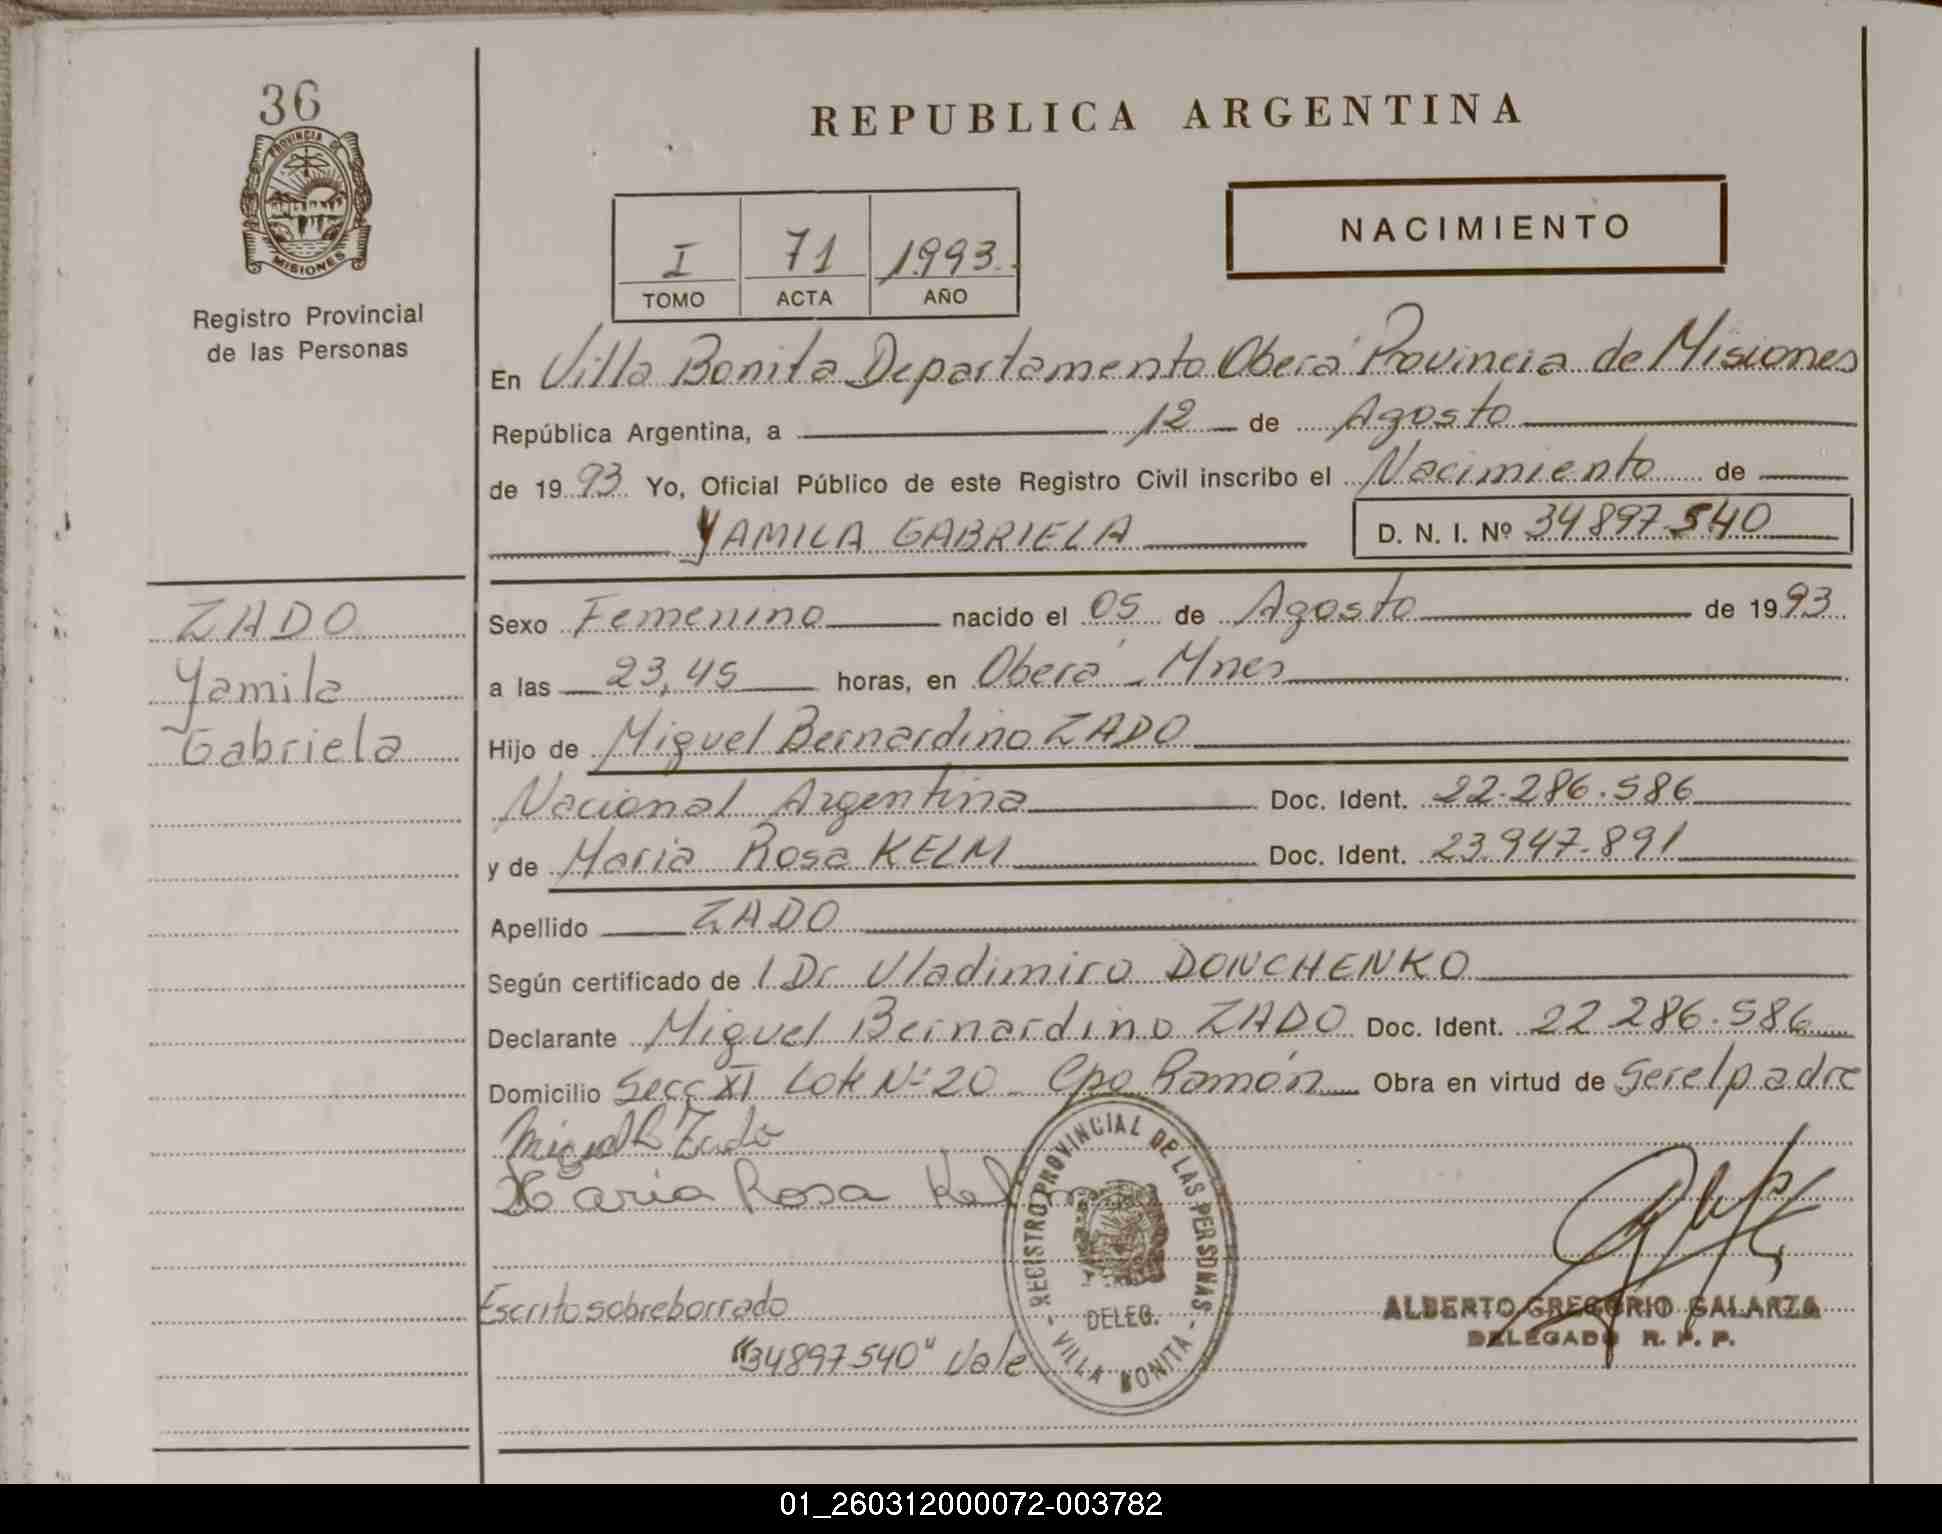 36
PROVINCIA DE
MISIONES
Registro Provincial
de las Personas
REPUBLICA ARGENTINA
I 71 1993
TOMO ACTA AÑO
NACIMIENTO
En Villa Bonita Departamento Oberá Provincia de Misiones
República Argentina, a 12 de Agosto
de 1993 Yo, Oficial Público de este Registro Civil inscribo el Nacimiento de
YAMILA GABRIELA D. N. I. Nº 34897540
ZADO
Yamila
Gabriela
Sexo Femenino nacido el 05 de Agosto de 1993
a las 23,45 horas, en Oberá - Mnes
Hijo de Miguel Bernardino ZADO
Nacional Argentina Doc. Ident. 22.286.586
y de Maria Rosa KELM Doc. Ident. 23.947.891
Apellido ZADO
Según certificado de l Dr Vladimiro DONCHENKO
Declarante Miguel Bernardino ZADO Doc. Ident. 22 286.586
Domicilio Secc XI Lote Nº 20 - Cpo Ramón Obra en virtud de ser el padre
Miguel B Zado
Maria Rosa Kelm
REGISTRO PROVINCIAL DE LAS PERSONAS
DELEG.
- VILLA BONITA -
ALBERTO GREGORIO GALARZA
DELEGADO R. P. P.
Escrito sobreborrado
"34897540" Vale
01_260312000072-003782